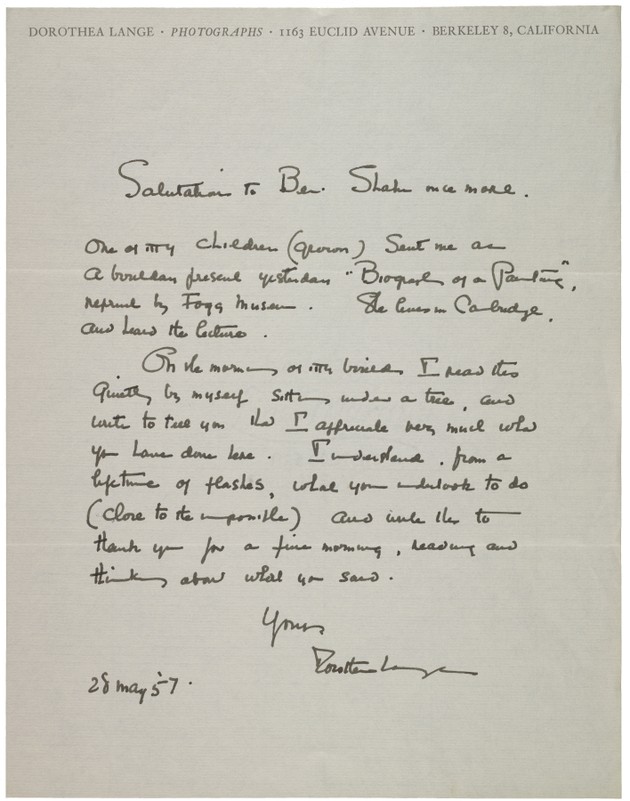 DOROTHEA LANGE · PHOTOGRAPHS · 1163 EUCLID AVENUE · BERKELEY 8, CALIFORNIA
Salutations to Ben Shahn once more.
One of my children (grown) sent me as
a birthday present yesterday "Biography of a Painting",
reprint by Fogg Museum. She lives in Cambridge,
and heard the lecture.
On the morning of my birthday I read this
quietly by myself sitting under a tree, and
write to tell you that I appreciate very much what
you have done here. I understand, from a
lifetime of flashes, what you undertook to do
(close to the impossible) and write this to
thank you for a fine morning, reading and
thinking about what you said.
Yours
Dorothea Lange
28 May 57.